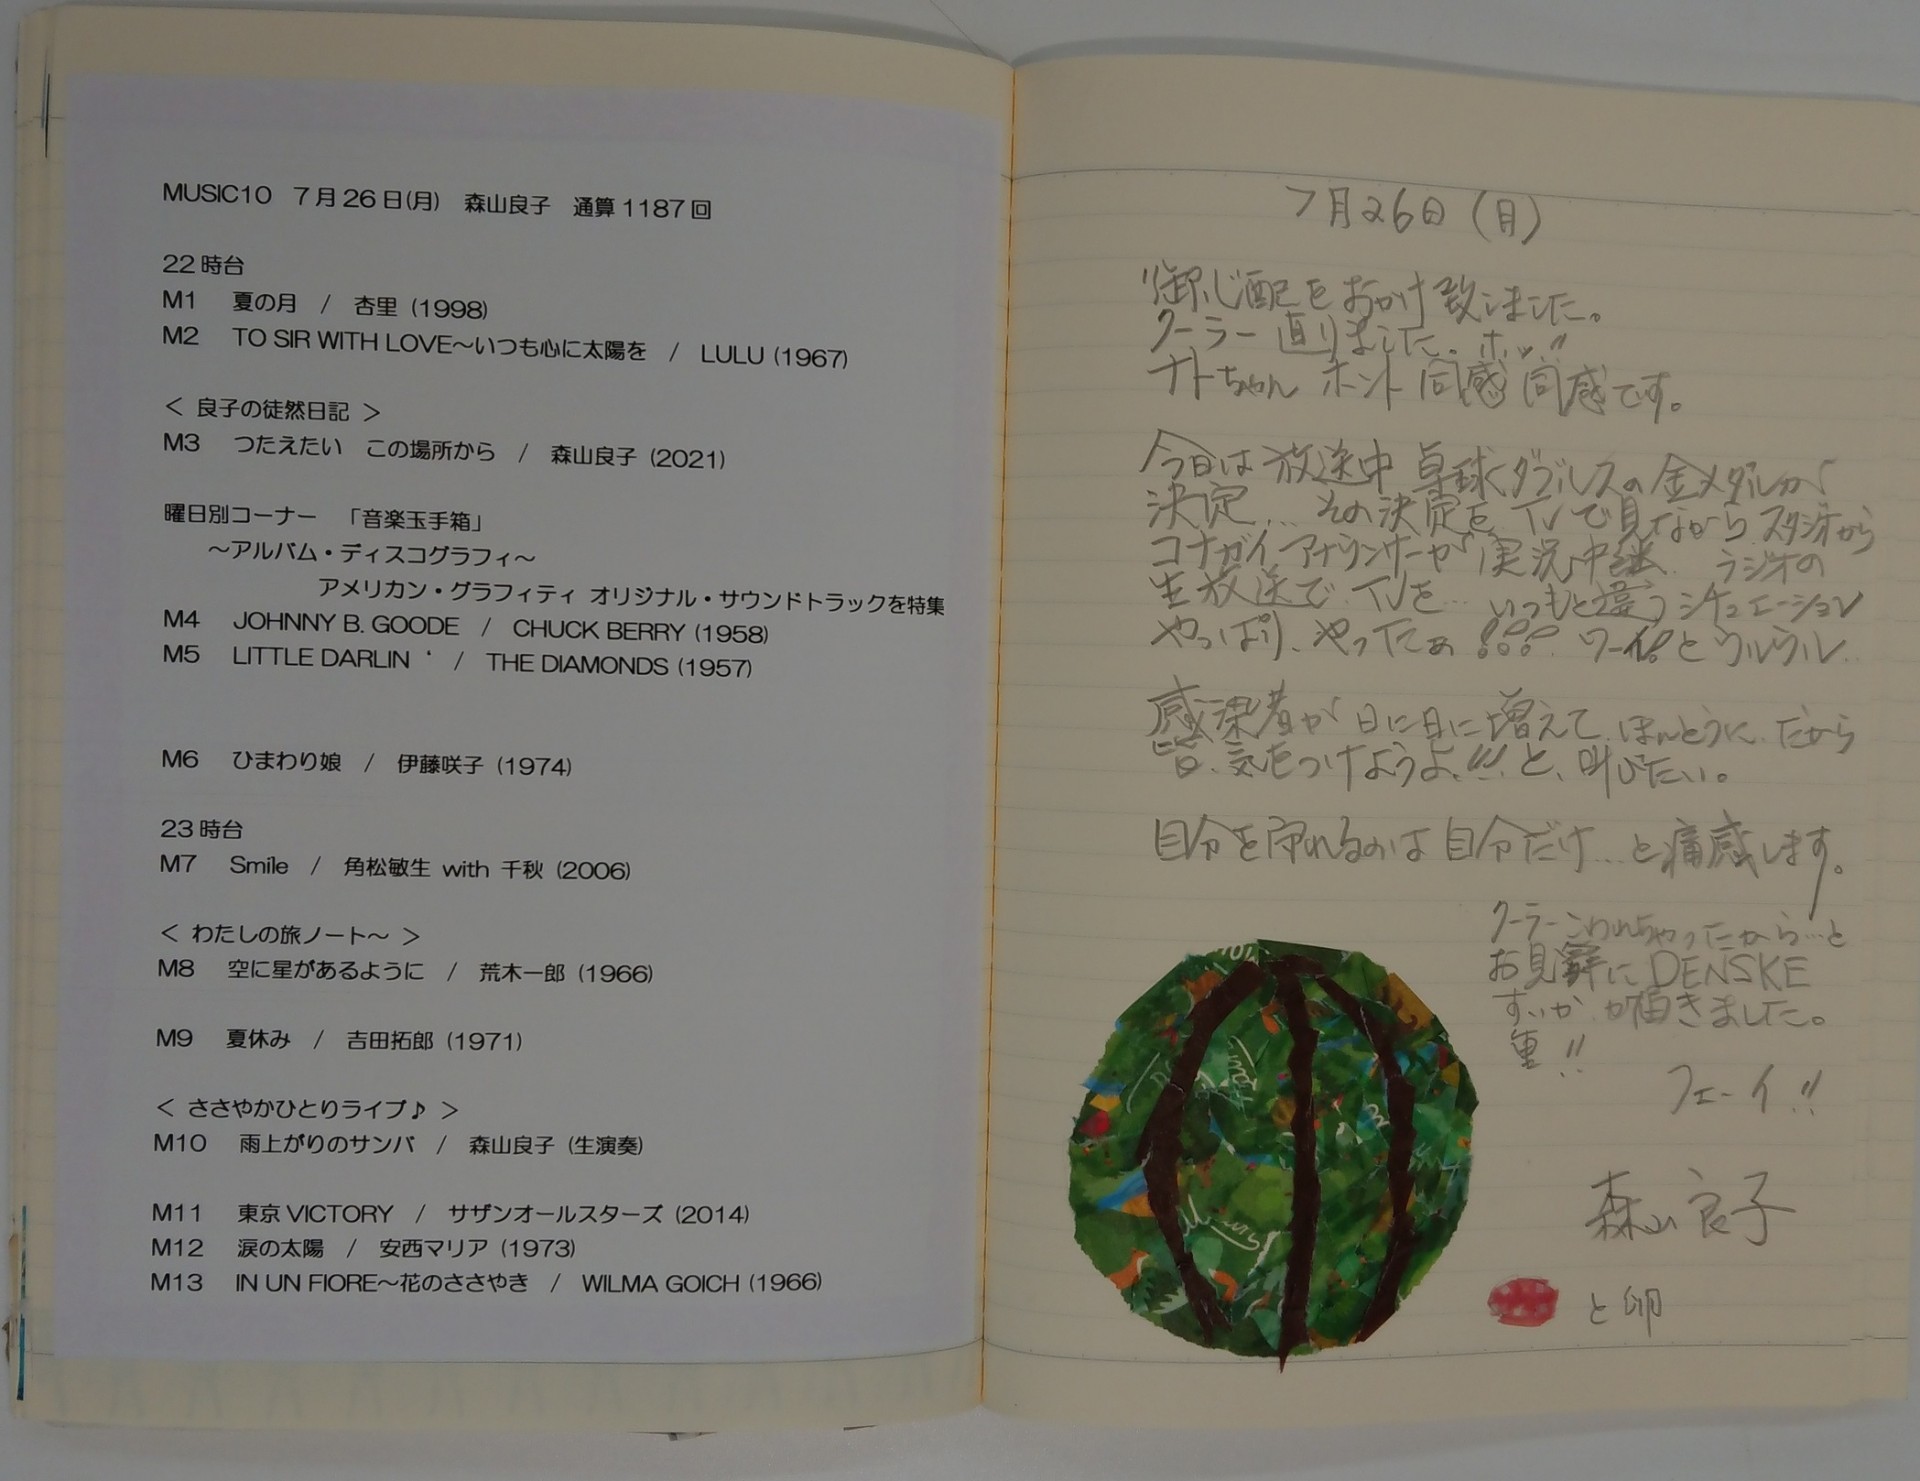 MUSIC10 7月26日(月) 森山良子 通算1187回
22時台
M1 夏の月 / 杏里 (1998)
M2 TO SIR WITH LOVE～いつも心に太陽を / LULU (1967)
＜ 良子の徒然日記 ＞
M3 つたえたい この場所から / 森山良子 (2021)
曜日別コーナー 「音楽玉手箱」
～アルバム・ディスコグラフィ～
アメリカン・グラフィティ オリジナル・サウンドトラックを特集
M4 JOHNNY B. GOODE / CHUCK BERRY (1958)
M5 LITTLE DARLIN ‘ / THE DIAMONDS (1957)
M6 ひまわり娘 / 伊藤咲子 (1974)
23時台
M7 Smile / 角松敏生 with 千秋 (2006)
＜ わたしの旅ノート～ ＞
M8 空に星があるように / 荒木一郎 (1966)
M9 夏休み / 吉田拓郎 (1971)
＜ ささやかひとりライブ♪ ＞
M10 雨上がりのサンバ / 森山良子 (生演奏)
M11 東京VICTORY / サザンオールスターズ (2014)
M12 涙の太陽 / 安西マリア (1973)
M13 IN UN FIORE～花のささやき / WILMA GOICH (1966)
7月26日(月)
御心配をおかけ致しました。
クーラー直りました。ホッ!!
ナトちゃん ホント 同感 同感です。
今日は 放送中 卓球ダブルスの金メダルが
決定... その決定を TVで見ながら スタジオから
コナガイアナウンサーが 実況中継. ラジオの
生放送で TVを... いつもと違う シチュエーション
やっぱり、やったぁ!!! ワーイ!とウルウル..
感染者が 日に日に増えて ほんとうに だから
皆、気をつけようよ!!! と、叫びたい。
自分を守れるのは 自分だけ...と痛感します。
クーラーこわれちゃったから...と
お見舞に DENSKE
すいか が届きました。
重!!
フェーイ!!
森山良子
と卵